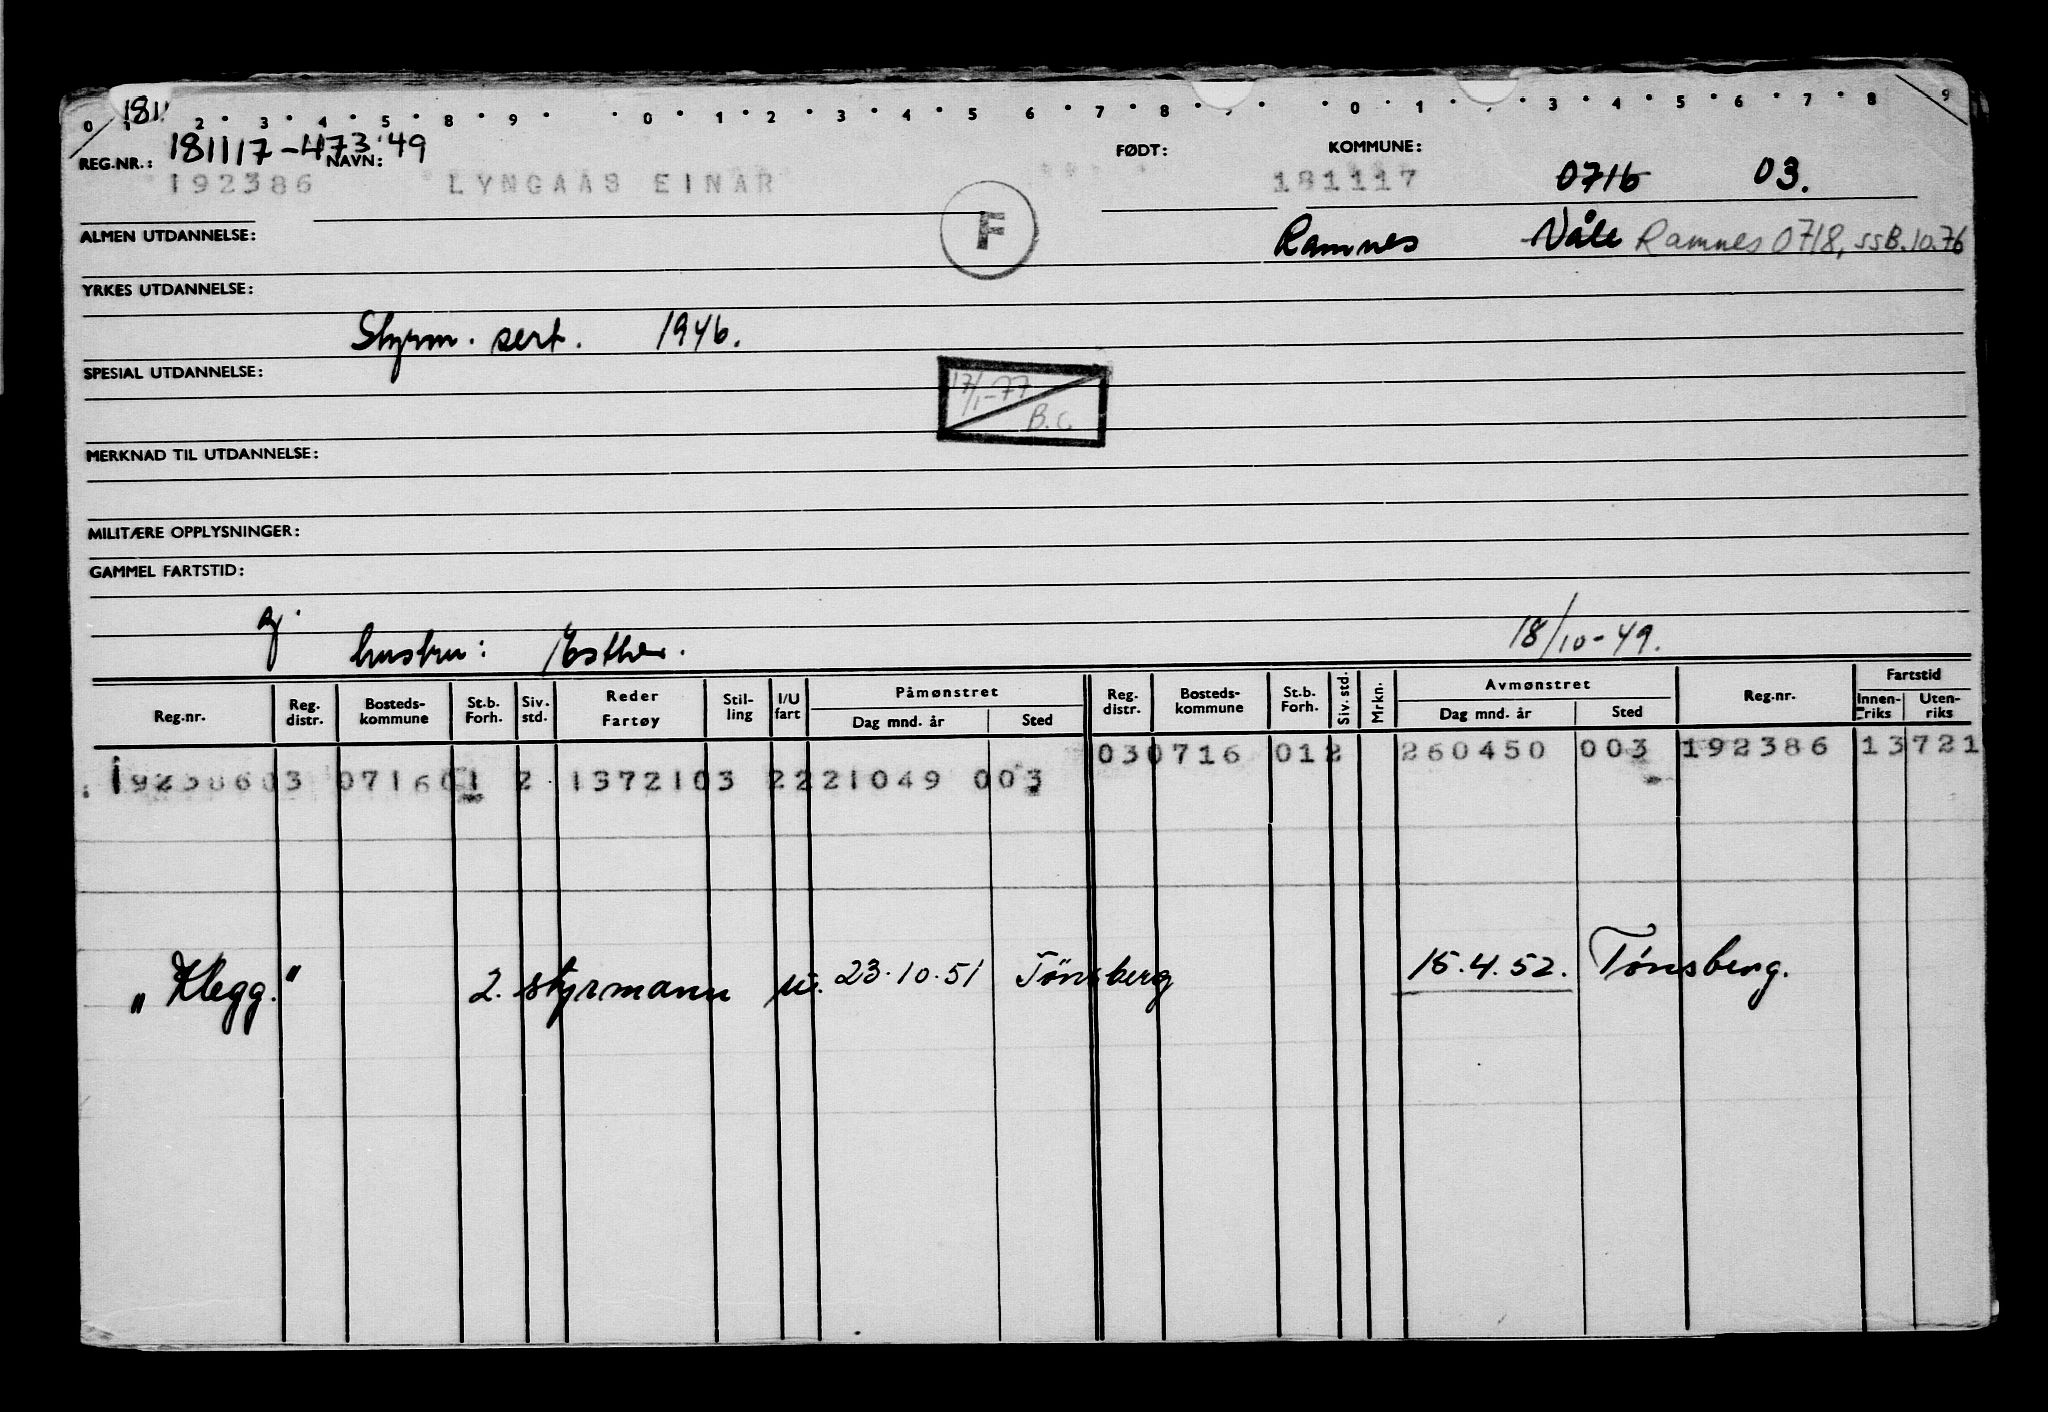 181
0 1 2 3 4 5 8 9 0 1 2 3 4 5 6 7 8 0 1 3 4 5 6 7 8 9
181117-473.49
REG.NR.: NAVN: FØDT: KOMMUNE:
192386 LYNGAAS EINAR 181117 0716 03.
F
ALMEN UTDANNELSE: Ramnes Våle Ramnes 0718, ssB.10.76
YRKES UTDANNELSE:
Styrm. sert. 1946.
SPESIAL UTDANNELSE:
17/1-77
B.C.
MERKNAD TIL UTDANNELSE:
MILITÆRE OPPLYSNINGER:
GAMMEL FARTSTID:
gj. hustru: Esther. 18/10-49.
Reg.nr. Reg. distr. Bosteds-kommune St.b. Forh. Siv. std. Reder Fartøy Stil-ling I/U fart Påmønstret Dag mnd. år Sted Reg. distr. Bosteds-kommune St.b. Forh. Siv. std. Mrkn. Avmønstret Dag mnd. år Sted Reg.nr. Fartstid Innen-riks Uten-riks
030716 012 260450 003 192386 13721
19238603 071601 2 1372103 2221049 003
„Klegg." 2. styrmann u. 23.10.51 Tönsberg 15.4.52. Tønsberg.